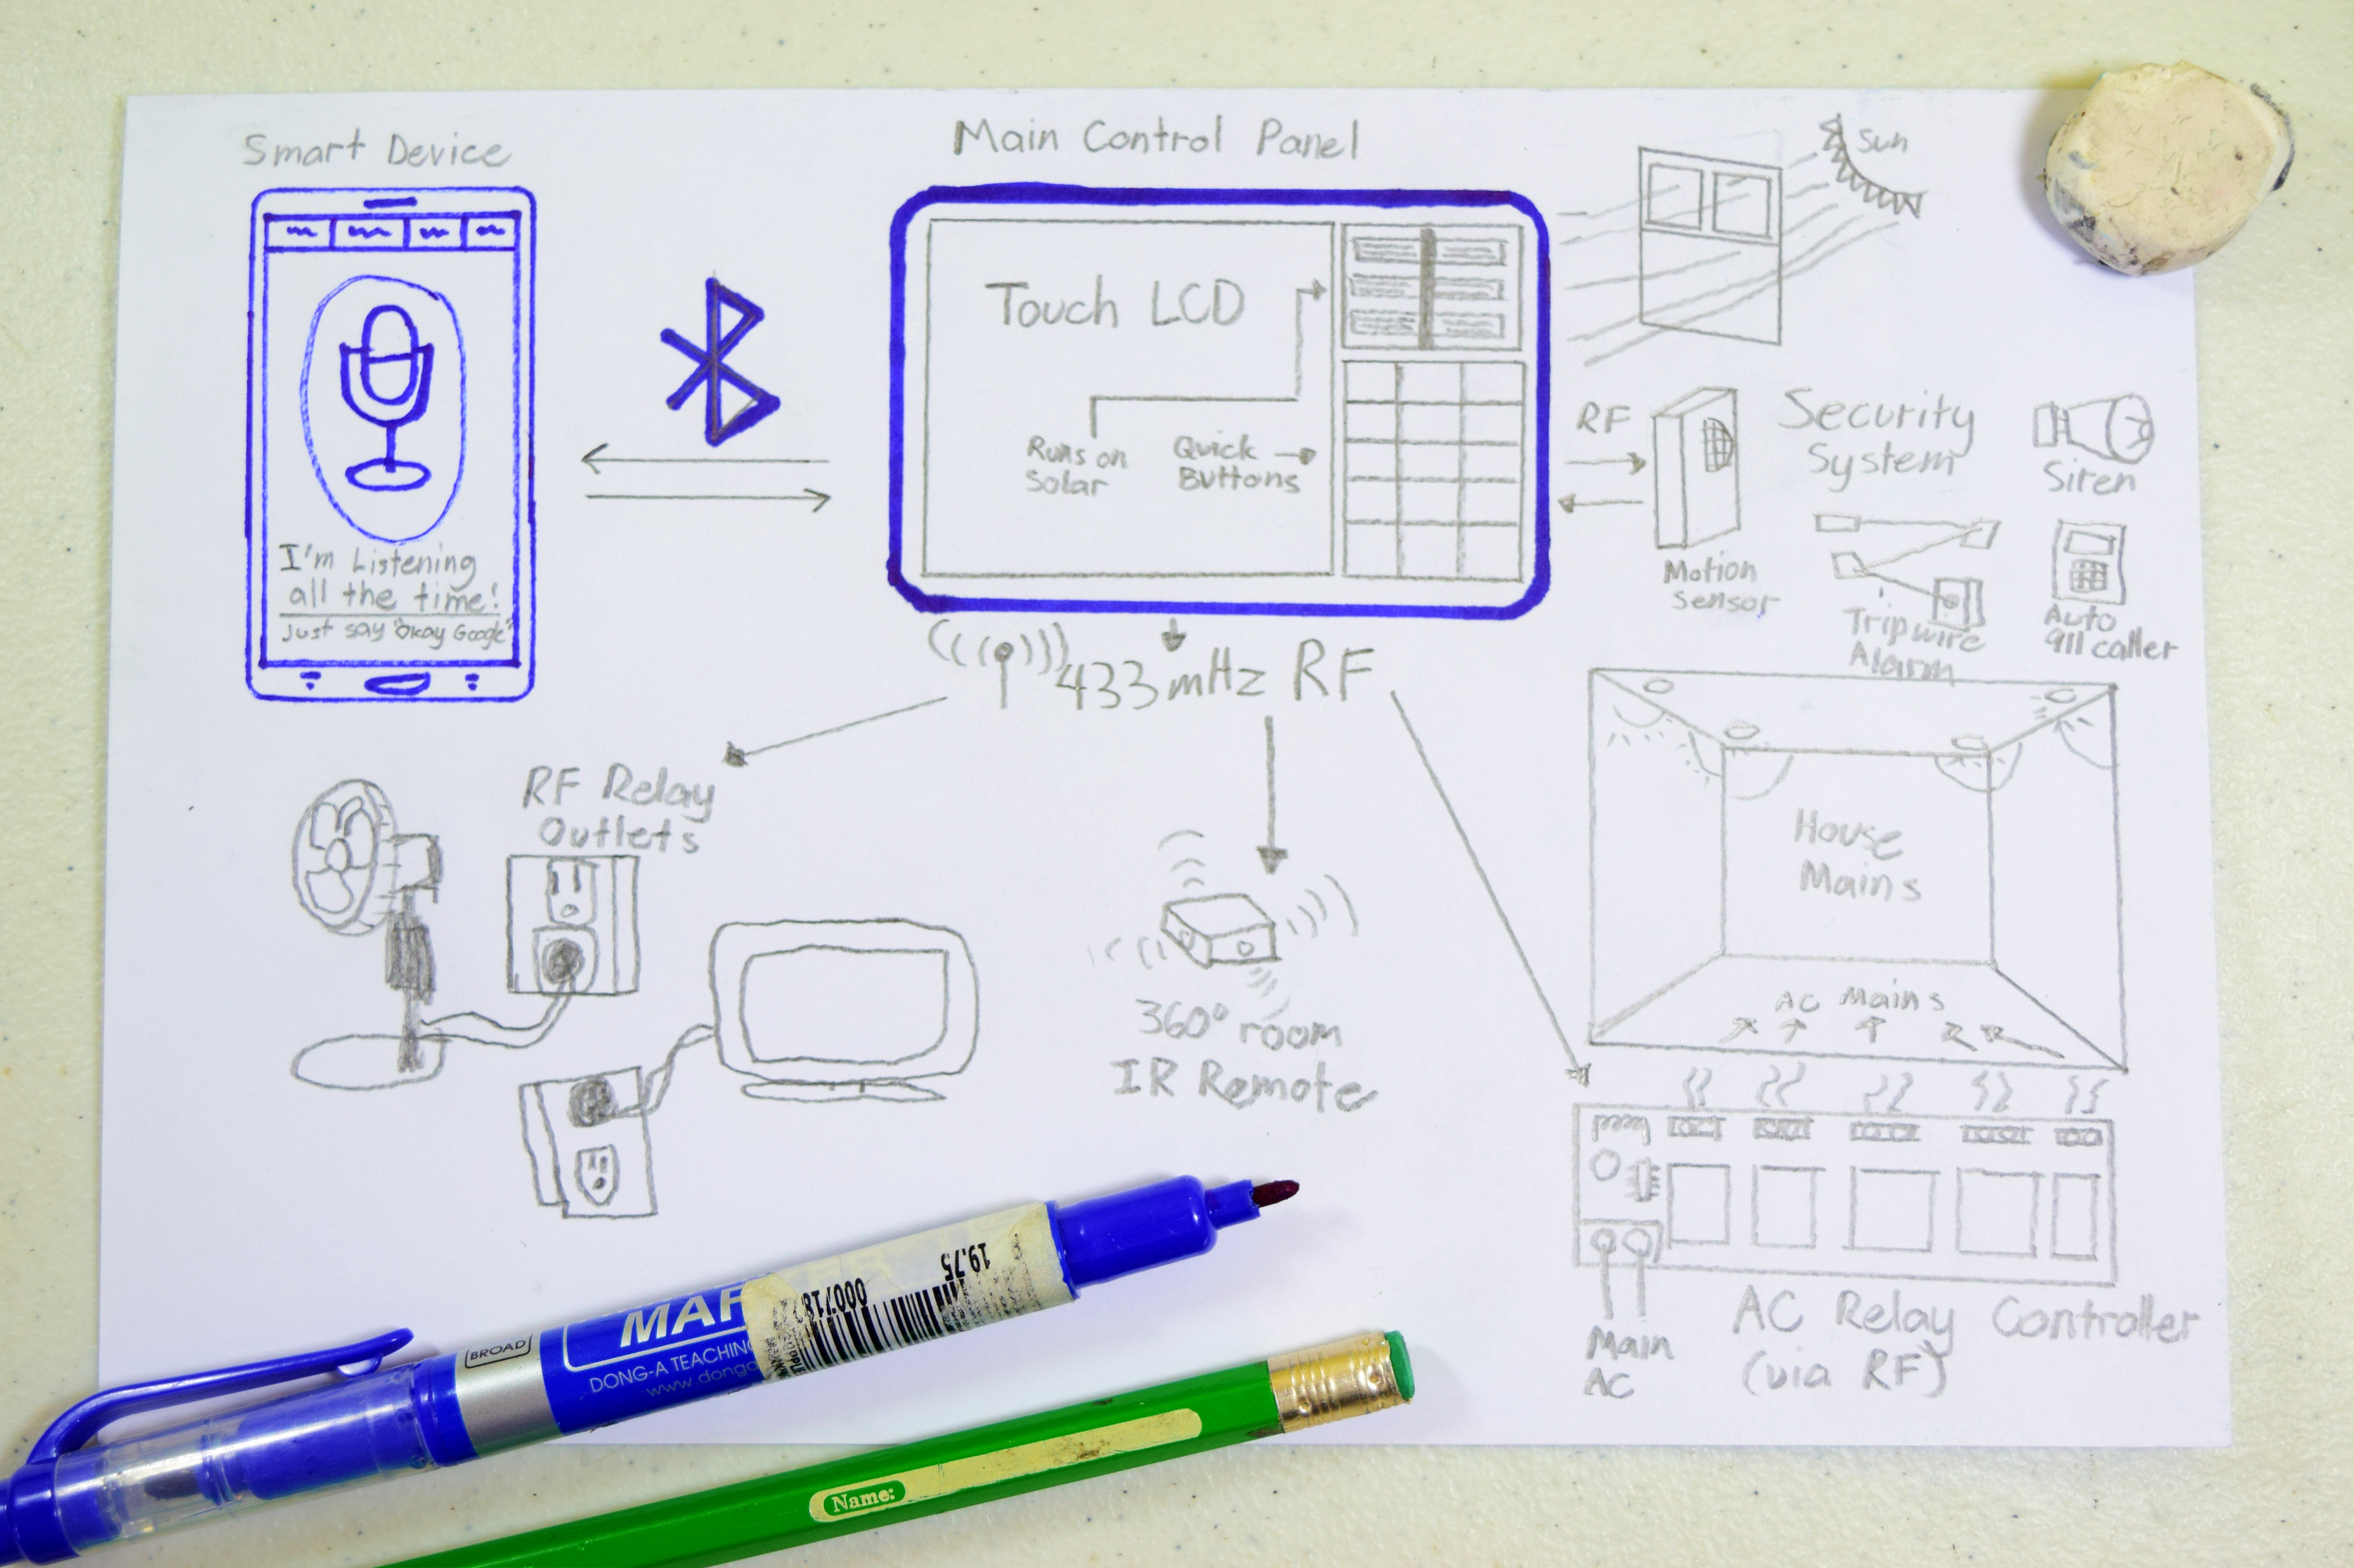 Smart Device
Main Control Panel
Sun
Touch LCD
Runs on
Solar
Quick
Buttons
I'm Listening
all the time!
Just say "Okay Google"
RF
Security
System
Siren
Motion
sensor
Tripwire
Alarm
Auto
911 caller
433 mHz RF
RF Relay
Outlets
360° room
IR Remote
House
Mains
AC Mains
Main
AC
AC Relay Controller
(via RF)
19.75
BROAD
DONG-A TEACHING
Name: